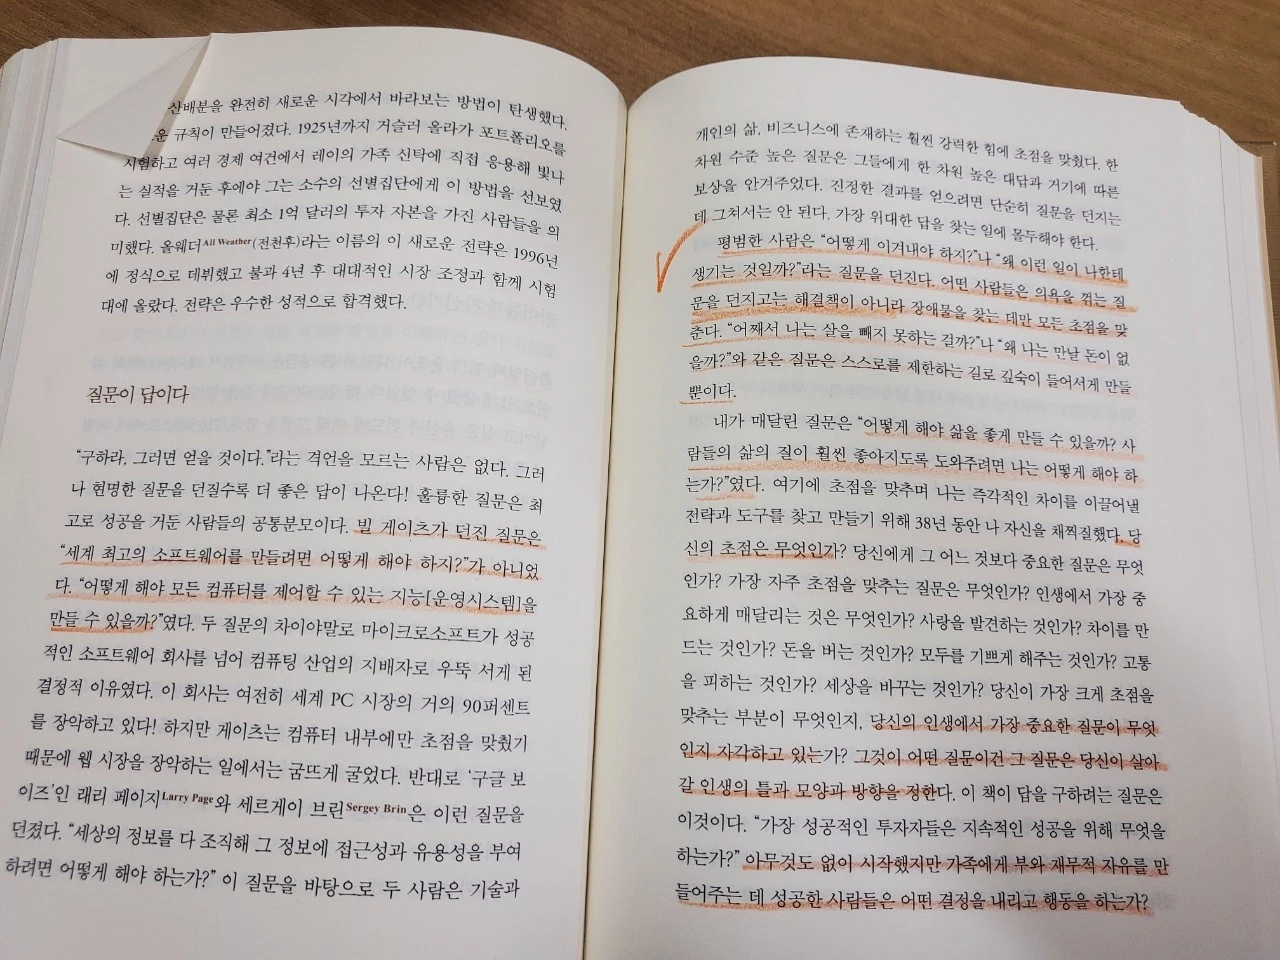 산배분을 완전히 새로운 시각에서 바라보는 방법이 탄생했다.
운 규칙이 만들어졌다. 1925년까지 거슬러 올라가 포트폴리오를
시험하고 여러 경제 여건에서 레이의 가족 신탁에 직접 응용해 빛나
는 실적을 거둔 후에야 그는 소수의 선별집단에게 이 방법을 선보였
다. 선별집단은 물론 최소 1억 달러의 투자 자본을 가진 사람들을 의
미했다. 올웨더All Weather(전천후)라는 이름의 이 새로운 전략은 1996년
에 정식으로 데뷔했고 불과 4년 후 대대적인 시장 조정과 함께 시험
대에 올랐다. 전략은 우수한 성적으로 합격했다.
질문이 답이다
“구하라, 그러면 얻을 것이다.”라는 격언을 모르는 사람은 없다. 그러
나 현명한 질문을 던질수록 더 좋은 답이 나온다! 훌륭한 질문은 최
고로 성공을 거둔 사람들의 공통분모이다. 빌 게이츠가 던진 질문은
“세계 최고의 소프트웨어를 만들려면 어떻게 해야 하지?”가 아니었
다. “어떻게 해야 모든 컴퓨터를 제어할 수 있는 지능[운영시스템]을
만들 수 있을까?”였다. 두 질문의 차이야말로 마이크로소프트가 성공
적인 소프트웨어 회사를 넘어 컴퓨팅 산업의 지배자로 우뚝 서게 된
결정적 이유였다. 이 회사는 여전히 세계 PC 시장의 거의 90퍼센트
를 장악하고 있다! 하지만 게이츠는 컴퓨터 내부에만 초점을 맞췄기
때문에 웹 시장을 장악하는 일에서는 굼뜨게 굴었다. 반대로 ‘구글 보
이즈’인 래리 페이지Larry Page와 세르게이 브린Sergey Brin은 이런 질문을
던졌다. “세상의 정보를 다 조직해 그 정보에 접근성과 유용성을 부여
하려면 어떻게 해야 하는가?” 이 질문을 바탕으로 두 사람은 기술과
개인의 삶, 비즈니스에 존재하는 훨씬 강력한 힘에 초점을 맞췄다. 한
차원 수준 높은 질문은 그들에게 한 차원 높은 대답과 거기에 따른
보상을 안겨주었다. 진정한 결과를 얻으려면 단순히 질문을 던지는
데 그쳐서는 안 된다. 가장 위대한 답을 찾는 일에 몰두해야 한다.
평범한 사람은 “어떻게 이겨내야 하지?”나 “왜 이런 일이 나한테
생기는 것일까?”라는 질문을 던진다. 어떤 사람들은 의욕을 꺾는 질
문을 던지고는 해결책이 아니라 장애물을 찾는 데만 모든 초점을 맞
춘다. “어째서 나는 살을 빼지 못하는 걸까?”나 “왜 나는 만날 돈이 없
을까?”와 같은 질문은 스스로를 제한하는 길로 깊숙이 들어서게 만들
뿐이다.
내가 매달린 질문은 “어떻게 해야 삶을 좋게 만들 수 있을까? 사
람들의 삶의 질이 훨씬 좋아지도록 도와주려면 나는 어떻게 해야 하
는가?”였다. 여기에 초점을 맞추며 나는 즉각적인 차이를 이끌어낼
전략과 도구를 찾고 만들기 위해 38년 동안 나 자신을 채찍질했다. 당
신의 초점은 무엇인가? 당신에게 그 어느 것보다 중요한 질문은 무엇
인가? 가장 자주 초점을 맞추는 질문은 무엇인가? 인생에서 가장 중
요하게 매달리는 것은 무엇인가? 사랑을 발견하는 것인가? 차이를 만
드는 것인가? 돈을 버는 것인가? 모두를 기쁘게 해주는 것인가? 고통
을 피하는 것인가? 세상을 바꾸는 것인가? 당신이 가장 크게 초점을
맞추는 부분이 무엇인지, 당신의 인생에서 가장 중요한 질문이 무엇
인지 자각하고 있는가? 그것이 어떤 질문이건 그 질문은 당신이 살아
갈 인생의 틀과 모양과 방향을 정한다. 이 책이 답을 구하려는 질문은
이것이다. “가장 성공적인 투자자들은 지속적인 성공을 위해 무엇을
하는가?” 아무것도 없이 시작했지만 가족에게 부와 재무적 자유를 만
들어주는 데 성공한 사람들은 어떤 결정을 내리고 행동을 하는가?